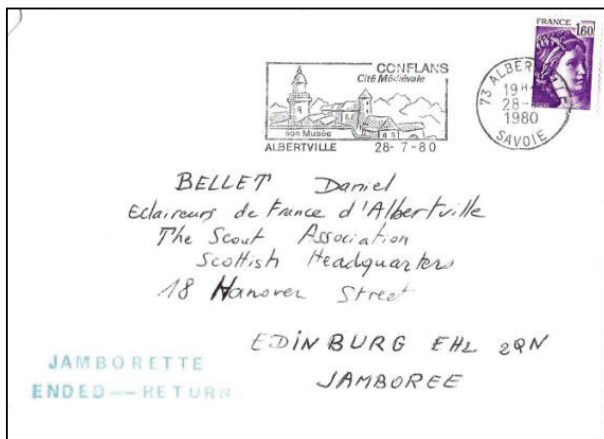 FRANCE
1,60
CONFLANS
Cité Médiévale
son Musée
ALBERTVILLE 28-7-80
73 ALBERTVILLE
19H
28-
1980
SAVOIE
BELLET Daniel
Eclaireurs de France d'Albertville
The Scout Association
Scottish Headquarters
18 Hanover Street
EDINBURG EH2 2QN
JAMBOREE
JAMBORETTE
ENDED — RETURN